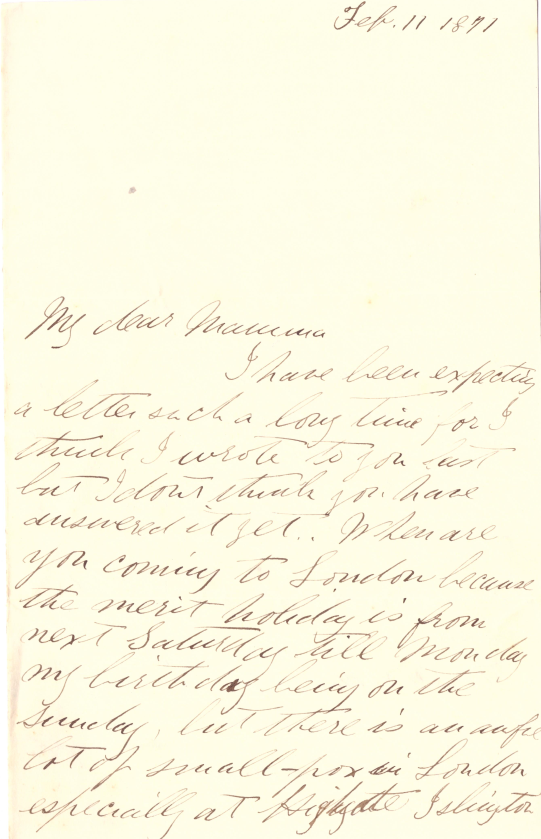 Feb. 11 1871
My dear Mamma
I have been expecting
a letter such a long time for I
think I wrote to you last
but I dont think you have
answered it yet.. When are
you coming to London because
the merit holiday is from
next Saturday till Monday
my birthday being on the
Sunday, but there is an awfu
lot of small-pox in London
especially at Highgate Islington